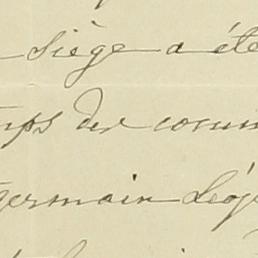 siège a été
mps des comm
germain Léop